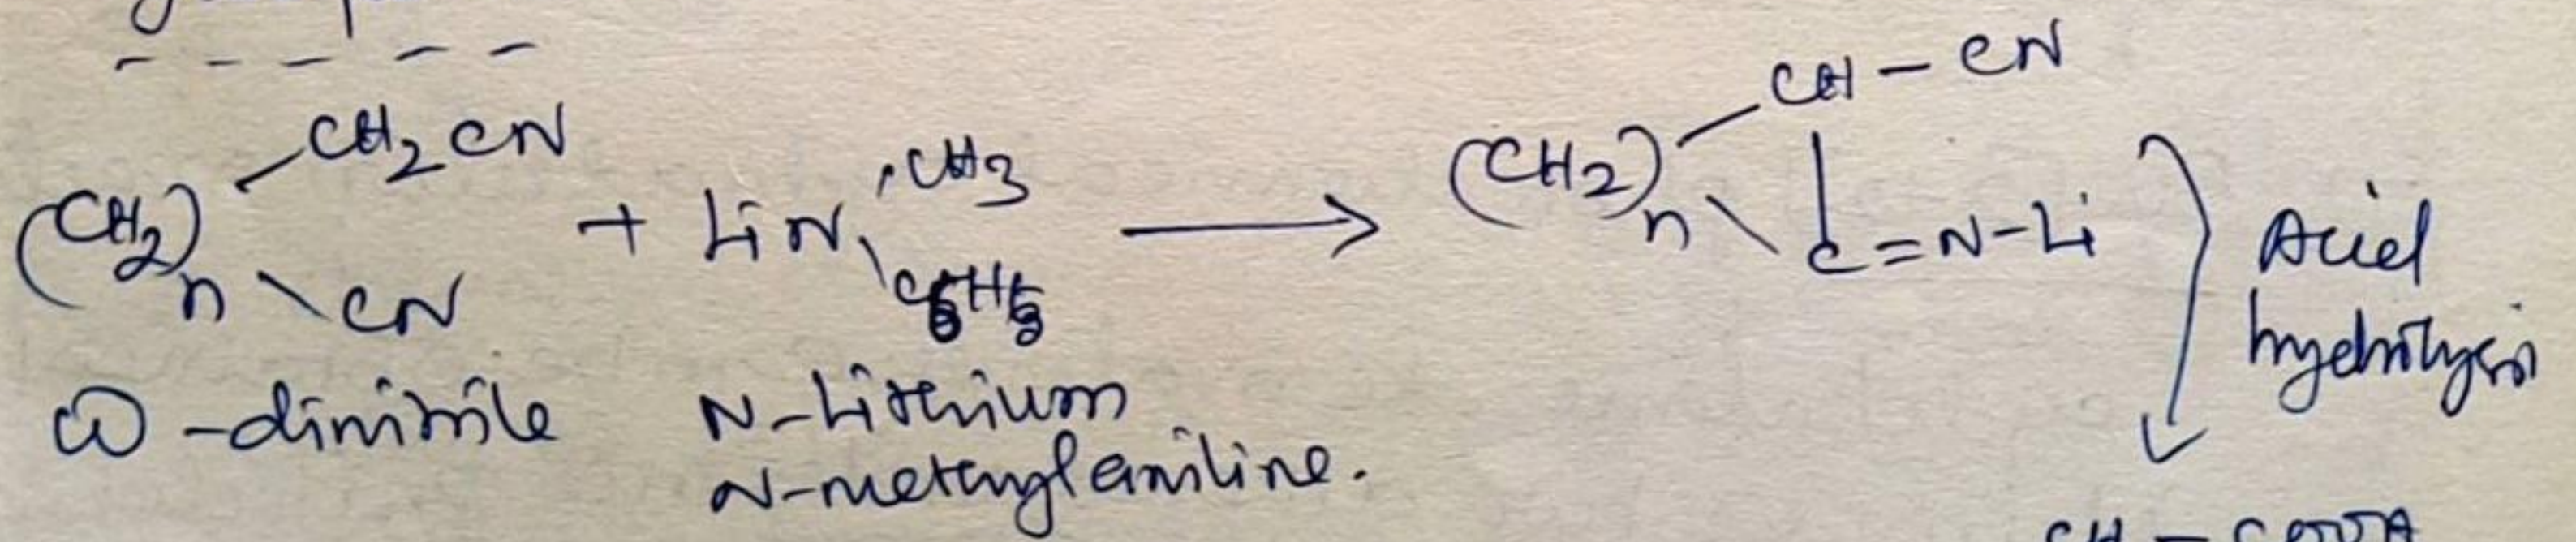 CH₂CN
(CH₂)n
CN
+ LiN
CH₃
C₆H₅
⟶
CH - CN
(CH₂)n
C = N - Li
Acid
hydrolysis
ω - dinitrile
N - Lithium
N - methylaniline.
CH - COOH